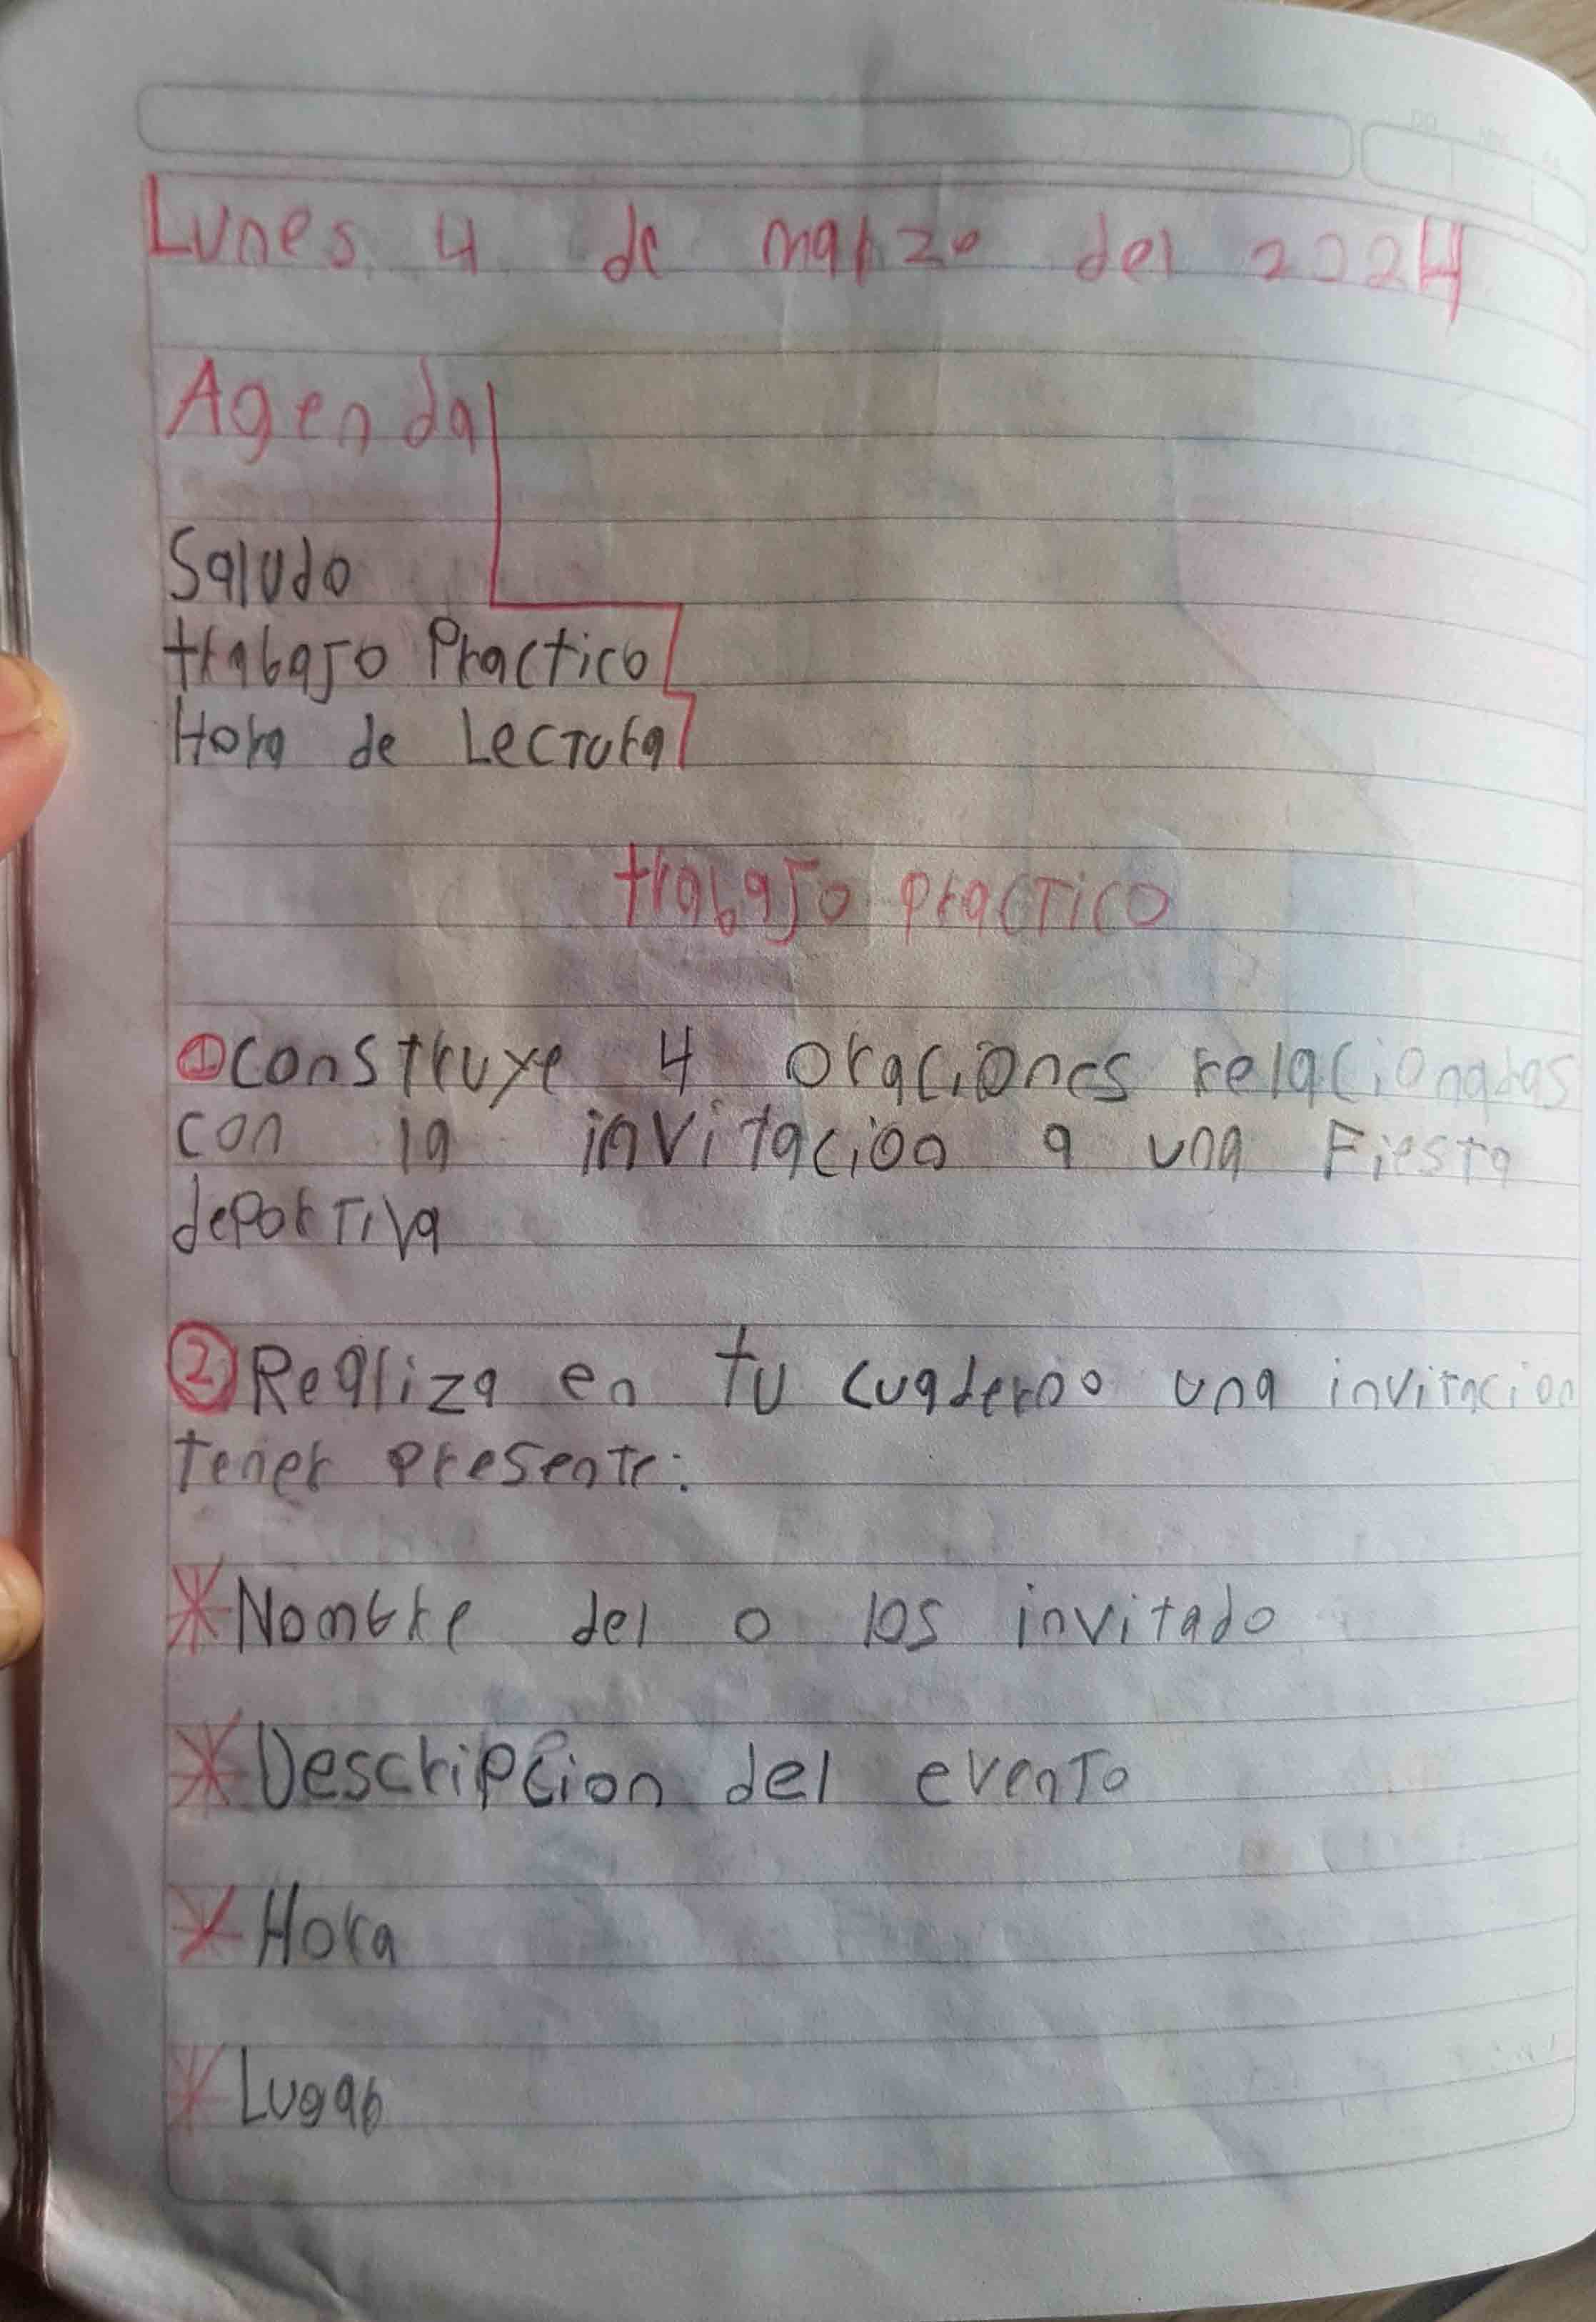 Lunes 4 de marzo del 2024
Agenda
Saludo
trabajo Practico
Hora de Lectura
trabajo practico
①construye 4 oraciones relacionadas
con la invitacion a una Fiesta
deportiva
②Realiza en tu cuaderno una invitacion
tener presente:
*Nombre del o los invitado
*Descripcion del evento
*Hora
*Lugar